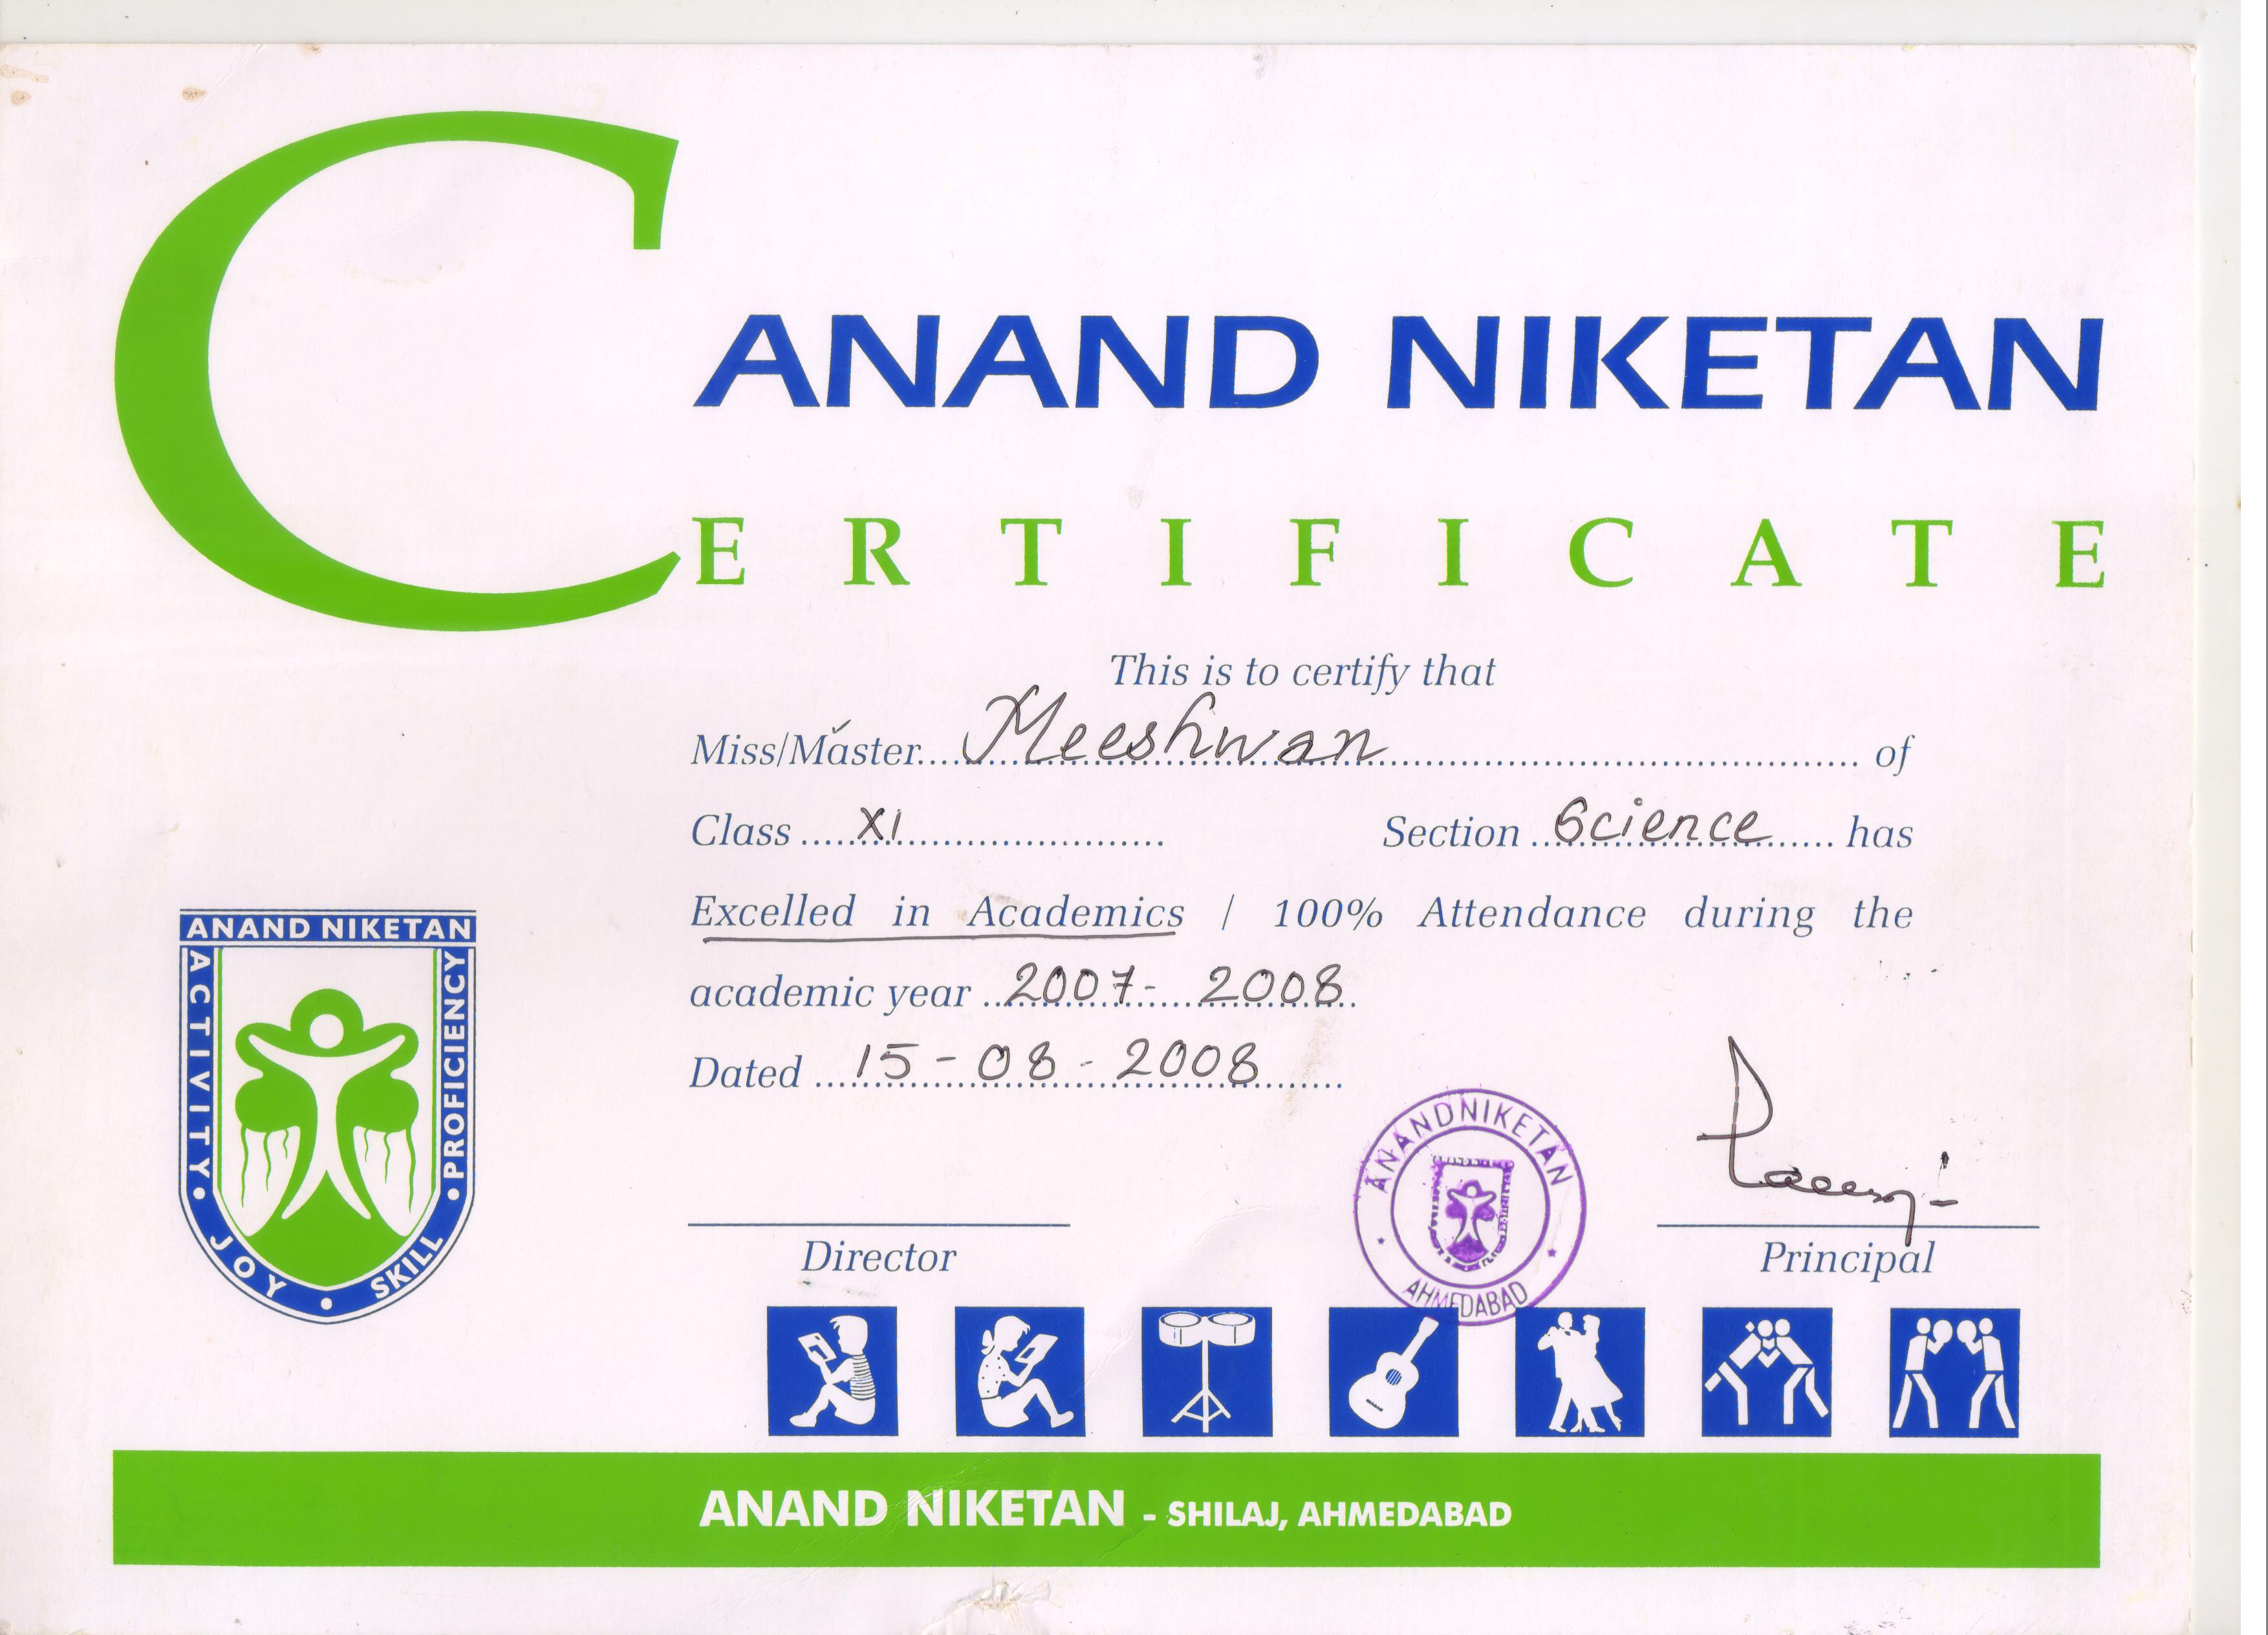 ANAND NIKETAN
CERTIFICATE
This is to certify that
Miss/Master....Meeshwan.... of
Class ....XI.... Section ....Science.... has
Excelled in Academics / 100% Attendance during the
academic year ....2007- 2008....
Dated ....15-08-2008....
ANAND NIKETAN
ACTIVITY • JOY • SKILL • PROFICIENCY
ANANDNIKETAN
AHMEDABAD
Director
Principal
ANAND NIKETAN - SHILAJ, AHMEDABAD